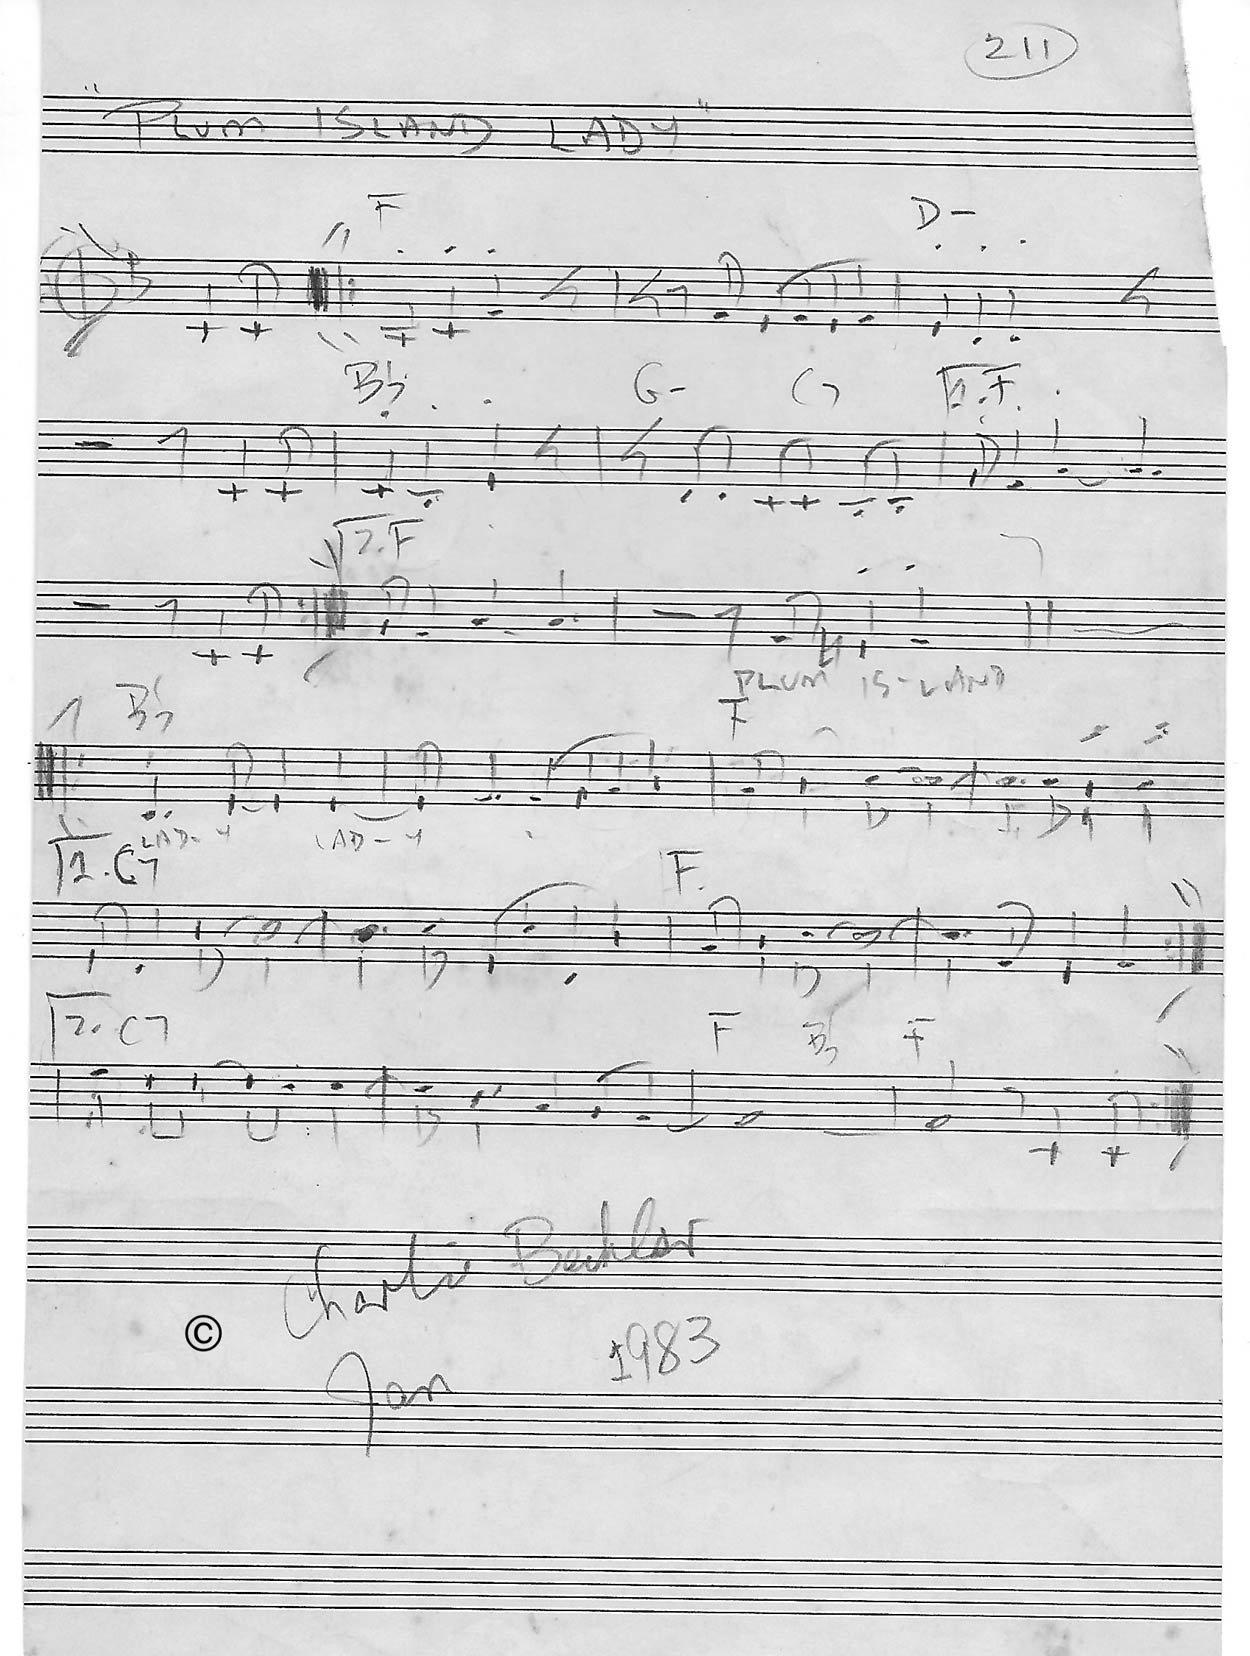 211
"PLUM ISLAND LADY"
F D-
B♭ G- C7 1. F
2. F
PLUM IS-LAND
B♭7 F
LAD-Y LAD-Y
1. C7 F.
2. C7 F B♭ F
Charlie
© 1983
Jan